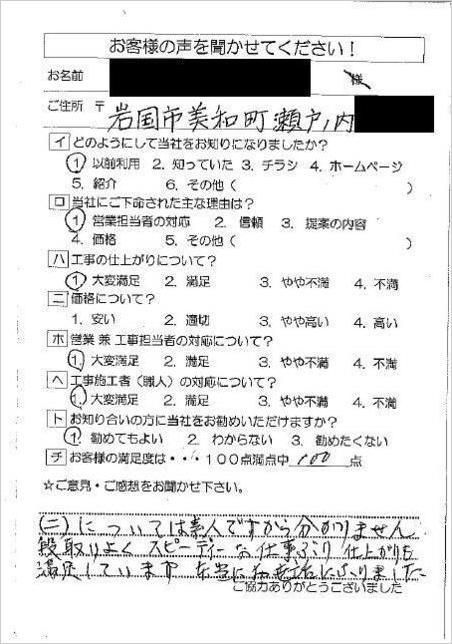 お客様の声を聞かせてください！
お名前 様
ご住所 〒 岩国市美和町瀬戸ノ内
イ どのようにして当社をお知りになりましたか？
1 以前利用 2. 知っていた 3. チラシ 4. ホームページ
5. 紹介 6. その他（ ）
ロ 当社にご下命された主な理由は？
1 営業担当者の対応 2. 信頼 3. 提案の内容
4. 価格 5. その他（ ）
ハ 工事の仕上がりについて？
1. 大変満足 2. 満足 3. やや不満 4. 不満
ニ 価格について？
1. 安い 2. 適切 3. やや高い 4. 高い
ホ 営業 兼 工事担当者の対応について？
1. 大変満足 2. 満足 3. やや不満 4. 不満
ヘ 工事施工者（職人）の対応について？
1. 大変満足 2. 満足 3. やや不満 4. 不満
ト お知り合いの方に当社をお勧めいただけますか？
1. 勧めてもよい 2. わからない 3. 勧めたくない
チ お客様の満足度は・・・100点満点中 100 点
☆ご意見・ご感想をお聞かせ下さい。
(ニ)については素人ですから分かりません
段取りよく スピーディーな仕事ぶり 仕上がりも
満足しています 本当にお世話になりました
ご協力ありがとうございました